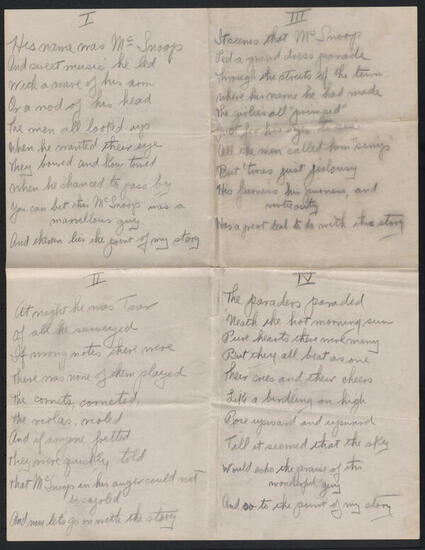 I
His name was Mc Snoop
And sweet music he led
With a wave of his arm
Or a nod of his head
The men all looked up
When he wanted their eye
They bowed and kow towed
When he chanced to pass by
You can bet this Mc Snoop was a
marvellous guy
And therein lies the point of my story
II
At night he was Tsar
Of all he surveyed
If wrong notes there were
There was none of them played
The cornets, corneted
the violas, violed
And if anyone fretted
They were quickly told
That Mc Snoop in his anger could not
be cajoled
And now lets go on with the story
III
It seems that Mc Snoop
Led a grand dress parade
Through the streets of the town
where his name he had made
The girlies all "primped"
Just for his eyes to see
All the men called him
But 'twas just jealousy
His fierceness, his pureness, and
virtuosity
Has a great deal to do with this story
IV
The paraders paraded
Neath the hot morning sun
Pure hearts there were many
But they all beat as one
Their cries and their cheers
Like a birdling on high
Rose upward and upward
Till it seemed that the sky
Would echo the praise of this
wonderful guy
And so to the point of my story